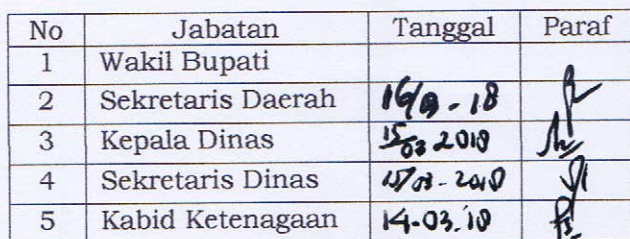 No Jabatan Tanggal Paraf
1 Wakil Bupati
2 Sekretaris Daerah 16/03 - 18
3 Kepala Dinas 15/03 2018
4 Sekretaris Dinas 15/03 - 2018
5 Kabid Ketenagaan 14-03.18